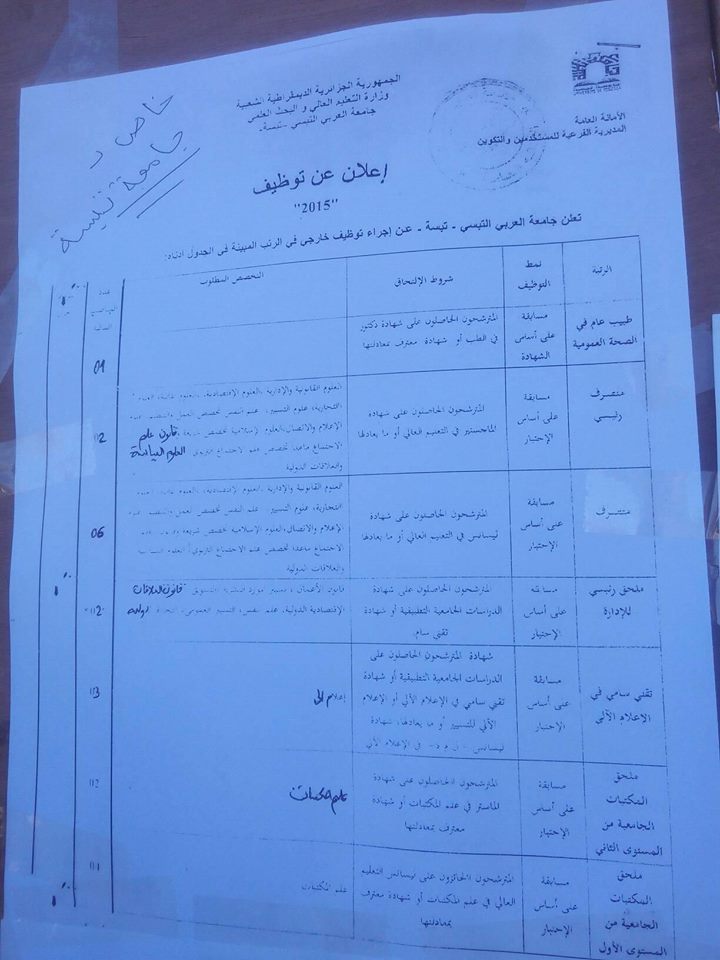 الجمهورية الجزائرية الديمقراطية الشعبية
وزارة التعليم العالي و البحث العلمي
جامعة العربي التبسي -تبسة-
الأمانة العامة
المديرية الفرعية للمستخدمين والتكوين
خاص بـ
جامعة تبسة
إعلان عن توظيف
"2015"
تعلن جامعة العربي التبسي - تبسة - عن إجراء توظيف خارجي في الرتب المبينة في الجدول أدناه:
الرتبة
نمط
التوظيف
شروط الإلتحاق
التخصص المطلوب
عدد
المناصب
المالية
طبيب عام في
الصحة العمومية
مسابقة
على أساس
الشهادة
المترشحون الحاصلون على شهادة دكتور
في الطب أو شهادة معترف بمعادلتها
01
متصرف
رئيسي
مسابقة
على أساس
الإختبار
المترشحون الحاصلون على شهادة
الماجستير في التعليم العالي أو ما يعادلها
العلوم القانونية والإدارية ،العلوم الإقتصادية، العلوم
التجارية، علوم التسيير، علم النفس تخصص العمل والتنظيم
الإعلام والاتصال،العلوم الإسلامية تخصص شريعة وقانون، علم
الاجتماع ماعدا تخصص علم الاجتماع التربوي، العلوم السياسية
والعلاقات الدولية
02
متصرف
مسابقة
على أساس
الإختبار
المترشحون الحاصلون على شهادة
ليسانس في التعليم العالي أو ما يعادلها
العلوم القانونية والإدارية ،العلوم الإقتصادية، العلوم
التجارية، علوم التسيير علم النفس تخصص العمل والتنظيم
الإعلام والاتصال،العلوم الإسلامية تخصص شريعة وقانون
الاجتماع ماعدا تخصص علم الاجتماع التربوي، العلوم السياسية
والعلاقات الدولية
06
ملحق رئيسي
للإدارة
مسابقة
على أساس
الإختبار
المترشحون الحاصلون على شهادة
الدراسات الجامعية التطبيقية أو شهادة
تقني سام.
قانون الأعمال، تسيير موارد البشرية، التسويق، قانون العلاقات
الإقتصادية الدولية، علم النفس، التسيير العمومي، دولية
02
تقني سامي في
الاعلام الآلي
مسابقة
على أساس
الإختبار
شهادة المترشحون الحاصلون على
الدراسات الجامعية التطبيقية أو شهادة
تقني سامي في الإعلام الآلي أو الإعلام
الآلي للتسيير أو ما يعادلها، شهادة
ليسانس - ل م د- في الإعلام الآلي
إعلام آلي
03
ملحق
المكتبات
الجامعية من
المستوى الثاني
مسابقة
على أساس
الإختبار
المترشحون الحاصلون على شهادة
الماستر في علم المكتبات أو شهادة
معترف بمعادلتها
علم المكتبات
02
ملحق
المكتبات
الجامعية من
المستوى الأول
مسابقة
على أساس
الإختبار
المترشحون الحائزون على ليسانس التعليم
العالي في علم المكتبات أو شهادة معترف
بمعادلتها
علم المكتبات
01